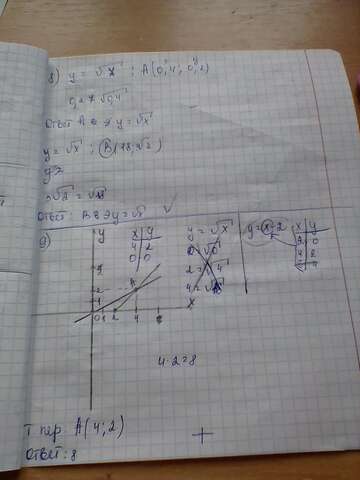 8) y = √x ; A(0,4; 0,2)
0,2 ≠ √0,4
Ответ A ∉ y = √x
y = √x ; B(18; 3√2)
3√2 = √18
Ответ: B ∈ y = √x
9) y
x y
4 2
0 0
y = √x
0 = √0
2 = √4
y = x-2
x y
2 0
4 2
0 1 2 4 x
4·2=8
Т пер. A(4; 2)
Ответ: 8